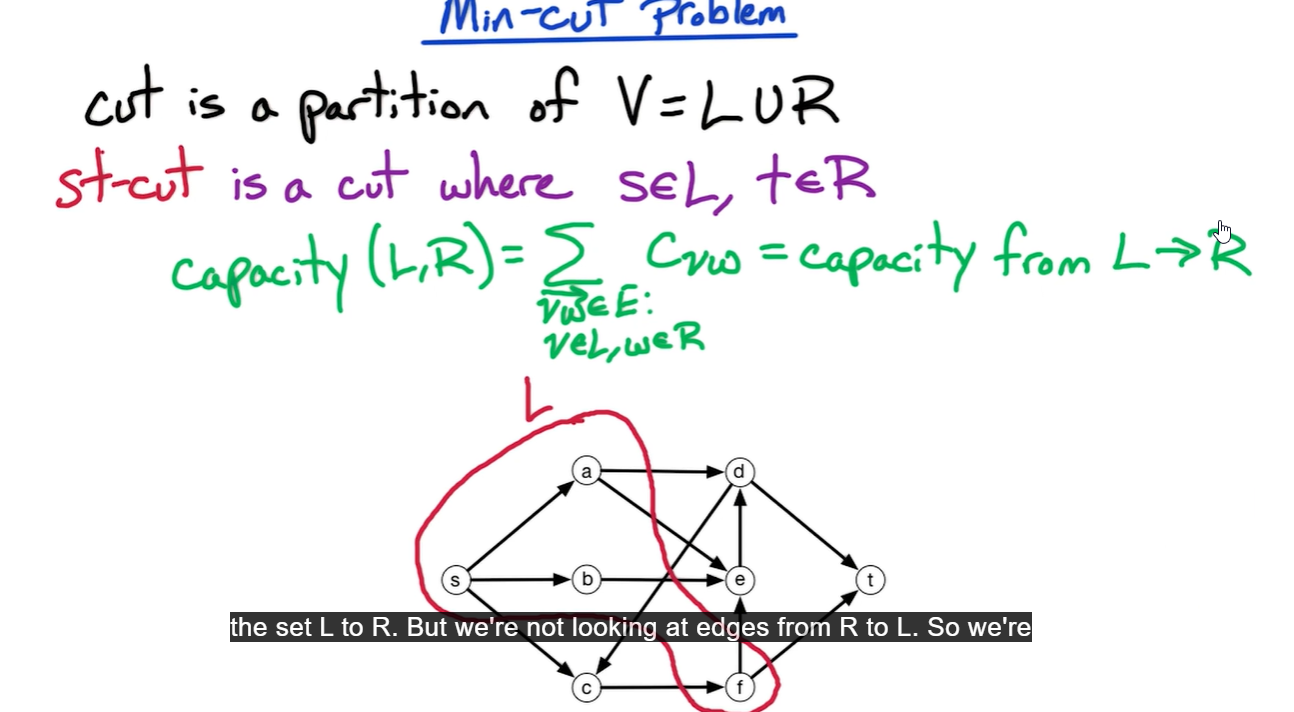 Min-cut Problem
cut is a partition of V = L ∪ R
st-cut is a cut where s∈L, t∈R
capacity (L,R) = ∑ Cvw = capacity from L → R
vw∈E:
v∈L, w∈R
L
a
d
s
b
e
t
the set L to R. But we're not looking at edges from R to L. So we're
c
f